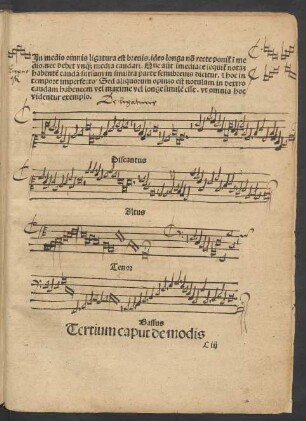 In medio omnis ligatura est brevis. ideo longa nũ recte ponit̃ ĩ me
dio. nec debet vnq̃ media caudari. Que aut̃ ĩmediate seq̃t̃ notaʒ
habentẽ caudã sursum in sinistra parte semibrevis dicitur. et hoc in
tempore imperfecto. Sed aliquorum opinio est notulam in dextro
caudam habentem vel maxime vel longe similẽ esse. vt omnia hoc
videntur exemplo.
Discantus
Altus
Tenor
Bassus
Tertium caput de modis
C iij